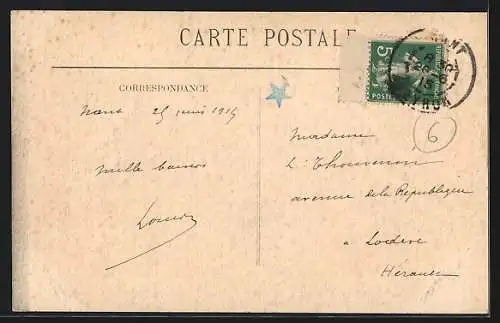 CARTE POSTALE
CORRESPONDANCE
5
POSTES
Nant 25 juin 1915
Mille baisers
Madame
L. Thouvenon
avenue de la République
a Lodève
Hérault
6